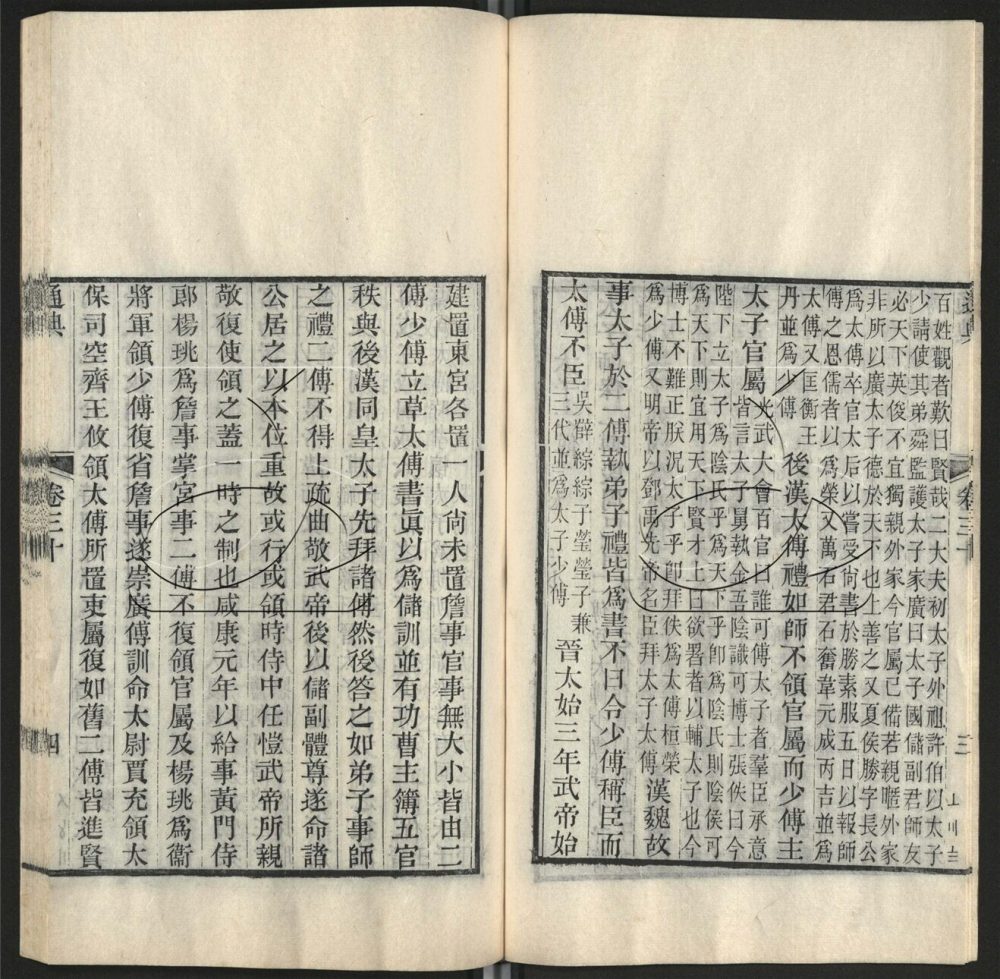 通典
卷三十
三
百姓觀者歎曰賢哉二大夫初太子外祖許伯以太子
少請使其弟舜監護太子家廣曰太子國儲副君師友
必天下英俊不宜獨親外家今官屬已備若親暱外家
非所以廣太子德於天下也上善之又夏侯勝字長公
爲太傅卒官太后以嘗受尚書於勝素服五日以報師
傅之恩儒者以爲榮又萬石君石奮韋元成丙吉並爲
太傅又匡衡王
丹並爲少傅
後漢太傅禮如師不領官屬而少傅主
太子官屬
光武大會百官曰誰可傅太子者羣臣承意
皆言太子舅執金吾陰識可博士張佚曰今
陛下立太子爲陰氏乎爲天下乎卽爲陰氏則陰侯可
爲天下則宜用天下賢才上曰欲置者以輔太子也今
博士不難正朕況太子乎卽拜佚爲太傅桓榮
爲少傅又明帝以鄧禹先帝名臣拜太子太傅
漢魏故
事太子於二傅執弟子禮皆爲書不曰令少傅稱臣而
太傅不臣
吳薛綜綜子瑩瑩子兼
三代並爲太子少傅
晉太始三年武帝始
建置東宮各置一人尚未置詹事官事無大小皆由二
傅少傅立草太傅書眞以爲儲訓並有功曹主簿五官
秩與後漢同皇太子先拜諸傅然後答之如弟子事師
之禮二傅不得上疏曲敬武帝後以儲副體尊遂命諸
公居之以本位重故或行或領時侍中任愷武帝所親
敬復使領之蓋一時之制也咸康元年以給事黃門侍
郎楊珧爲詹事掌宮事二傅不復領官屬及楊珧爲衞
將軍領少傅復省詹事遂崇廣傅訓命太尉賈充領太
保司空齊王攸領太傅所置吏屬復如舊二傅皆進賢
通典
卷三十
四